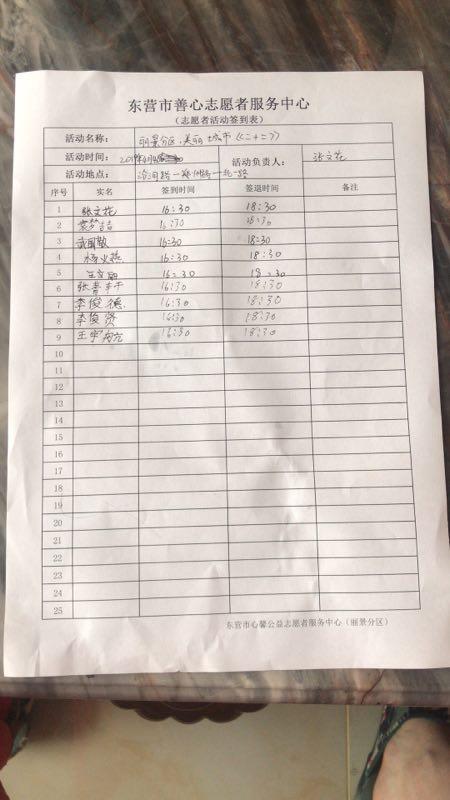 东营市善心志愿者服务中心
（志愿者活动签到表）
活动名称： 丽景分区,美丽城市《二十二》
活动时间： 活动负责人： 张文花
活动地点：
序号 实名 签到时间 签退时间 备注
1 张文花 16:30 18:30
2 16:30 18:30
3 16:30 18:30
4 16:30 18:30
5 16:30 18:30
6 16:30 18:30
7 李俊德 16:30 18:30
8 李俊贤 16:30 18:30
9 16:30 18:30
10
11
12
13
14
15
16
17
18
19
20
21
22
23
24
25
东营市心馨公益志愿者服务中心（丽景分区）